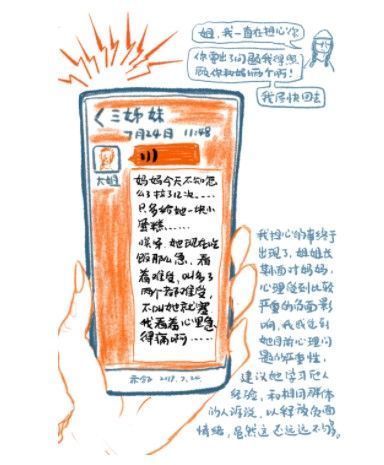 姐,我一直在担心你
你要出了问题我得照
顾你和妈两个啊!
我尽快回去
く三姊妹
7月24日 11:48
大姐
妈妈今天不知怎
么了拉了12次……
只多给她一块小
蛋糕……
唉呀,她现在吃
饭那么急,看
着难受,叫多了
两个都难受,
不叫她就塞
我看着心里急
得病啊……
2018.7.24.
我担心的事终于
出现了,姐姐长
期面对妈妈,
心理受到比较
严重的负面影
响,我感觉到
她目前心理问
题的严重性,
建议她学习他人
经验,和相同群体
的人诉说,以释放负面
情绪,虽然这还远远不够。